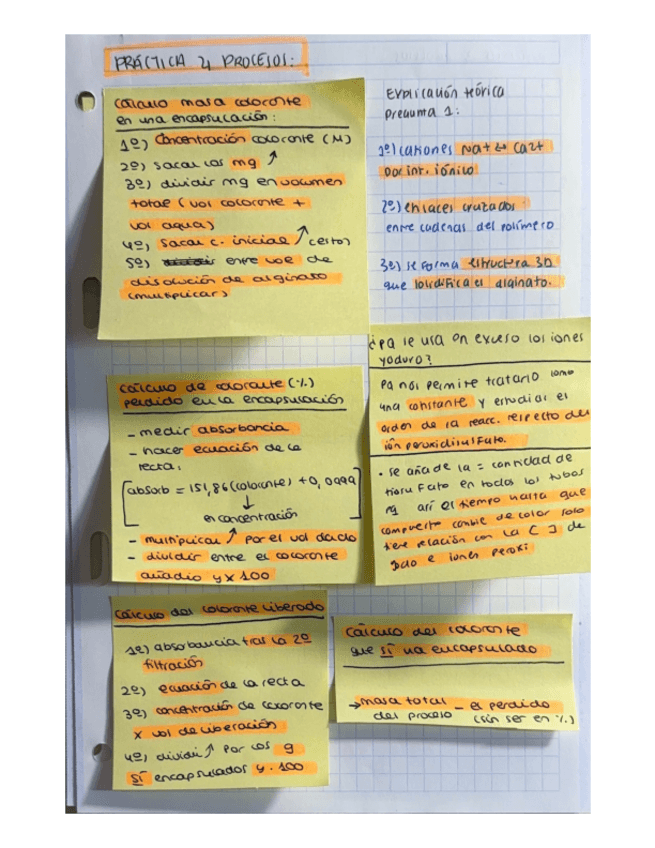 PRÁCTICA 4 PROCESOS:
Cálculo masa colorante
en una encapsulación:
1º) Concentración colorante (M)
2º) sacar los mg
3º) dividir mg en volumen
total (vol colorante +
vol agua)
4º) Sacar c. inicial
5º) entre vol de
disolución de alginato
(multiplicar)
Explicación teórica
Pregunta 1:
1º) cationes Na+ ↔ Ca2+
por int. iónico
2º) enlaces cruzados
entre cadenas del polímero
3º) se forma estructura 3D
que solidifica el alginato.
Cálculo de colorante (%)
perdido en la encapsulación
- medir absorbancia
- hacer ecuación de la
recta:
absorb = 151,86 (colorante) + 0,0099
en concentración
- multiplicar por el vol dado
- dividir entre el colorante
añadio y x 100
¿Pa se usa en exceso los iones
yoduro?
Pa nos permite tratarlo como
una constante y estudiar el
orden de la reacc. respecto del
ión peroxidisulfato.
• Se añade la = cantidad de
tiosulfato en todos los tubos
pq así el tiempo hasta que
compuesto cambie de color solo
tiene relación con la [ ] de
iones peroxi
Cálculo del colorante liberado
1º) absorbancia tras la 2ª
filtración
2º) ecuación de la recta
3º) concentración de colorante
x vol de liberación
4º) dividir por los g
SÍ encapsulados y · 100
Cálculo del colorante
que SÍ va encapsulado
→ masa total - el perdido
del proceso (sin ser en %)